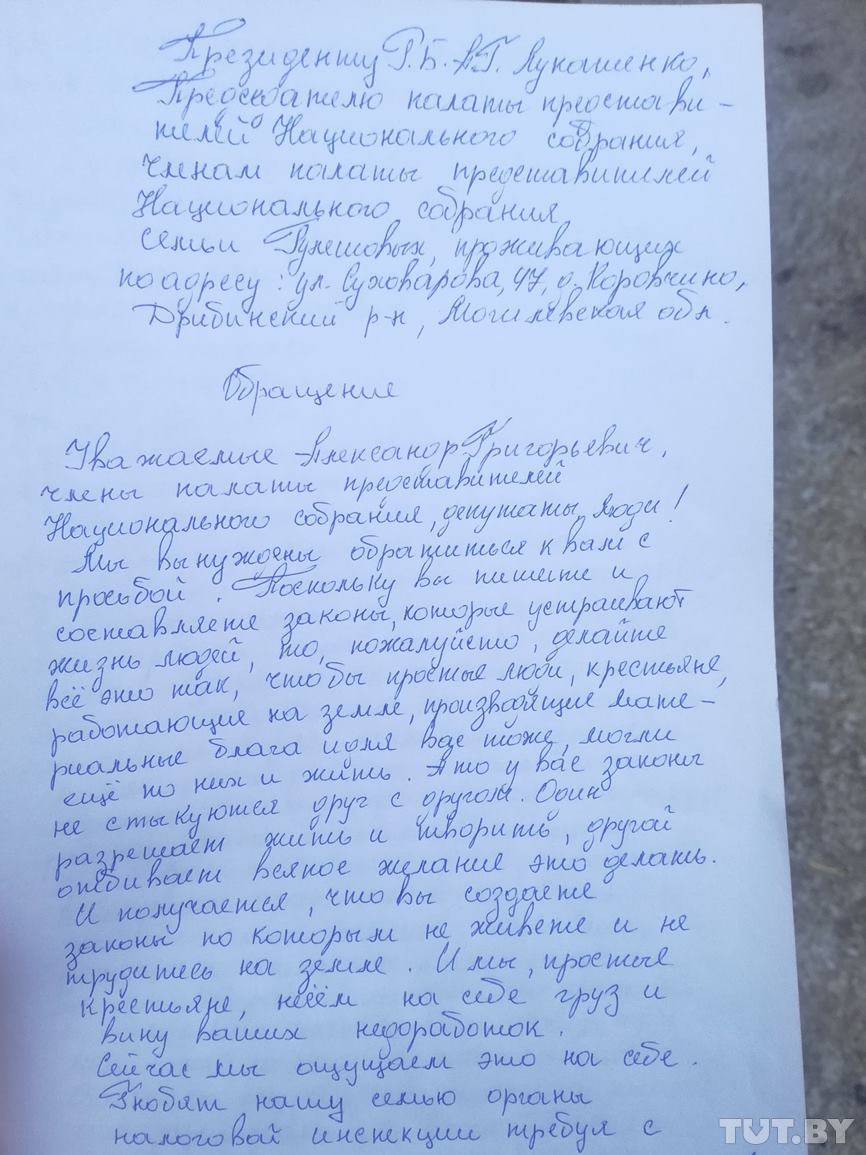 Президенту Р.Б. А.Г. Лукашенко,
Председателю палаты представи-
телей Национального собрания,
членам палаты представителей
Национального собрания
семьи Гулешовых, проживающих
по адресу: ул. Суховарова, 47, д. Коровчино,
Дрибинский р-н, Могилевская обл.
Обращение
Уважаемые Александр Григорьевич,
члены палаты представителей
Национального собрания, депутаты, люди!
Мы вынуждены обратиться к вам с
просьбой. Поскольку вы пишите и
составляете законы, которые устраивают
жизнь людей, то, пожалуйста, делайте
всё это так, чтобы простые люди, крестьяне,
работающие на земле, производящие мате-
риальные блага и для вас тоже, могли
ещё по ним и жить. А то у вас законы
не стыкуются друг с другом. Один
разрешает жить и творить, другой
отбивает всякое желание это делать.
И получается, что вы создаете
законы по которым не живете и не
трудитесь на земле. И мы, простые
крестьяне, несём на себе груз и
вину ваших недоработок.
Сейчас мы ощущаем это на себе.
Гнобят нашу семью органы
налоговой инспекции требуя с
TUT.BY